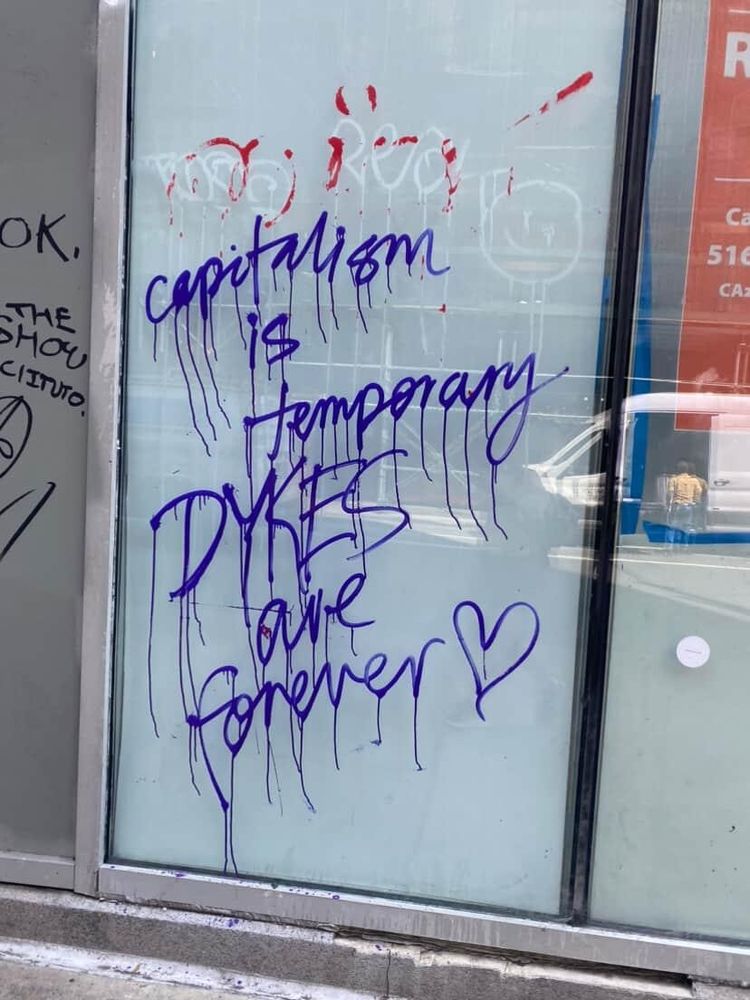 OK.
THE
SHOW
capitalism
is
temporary
DYKES
are
forever
R
Ca
516
CA